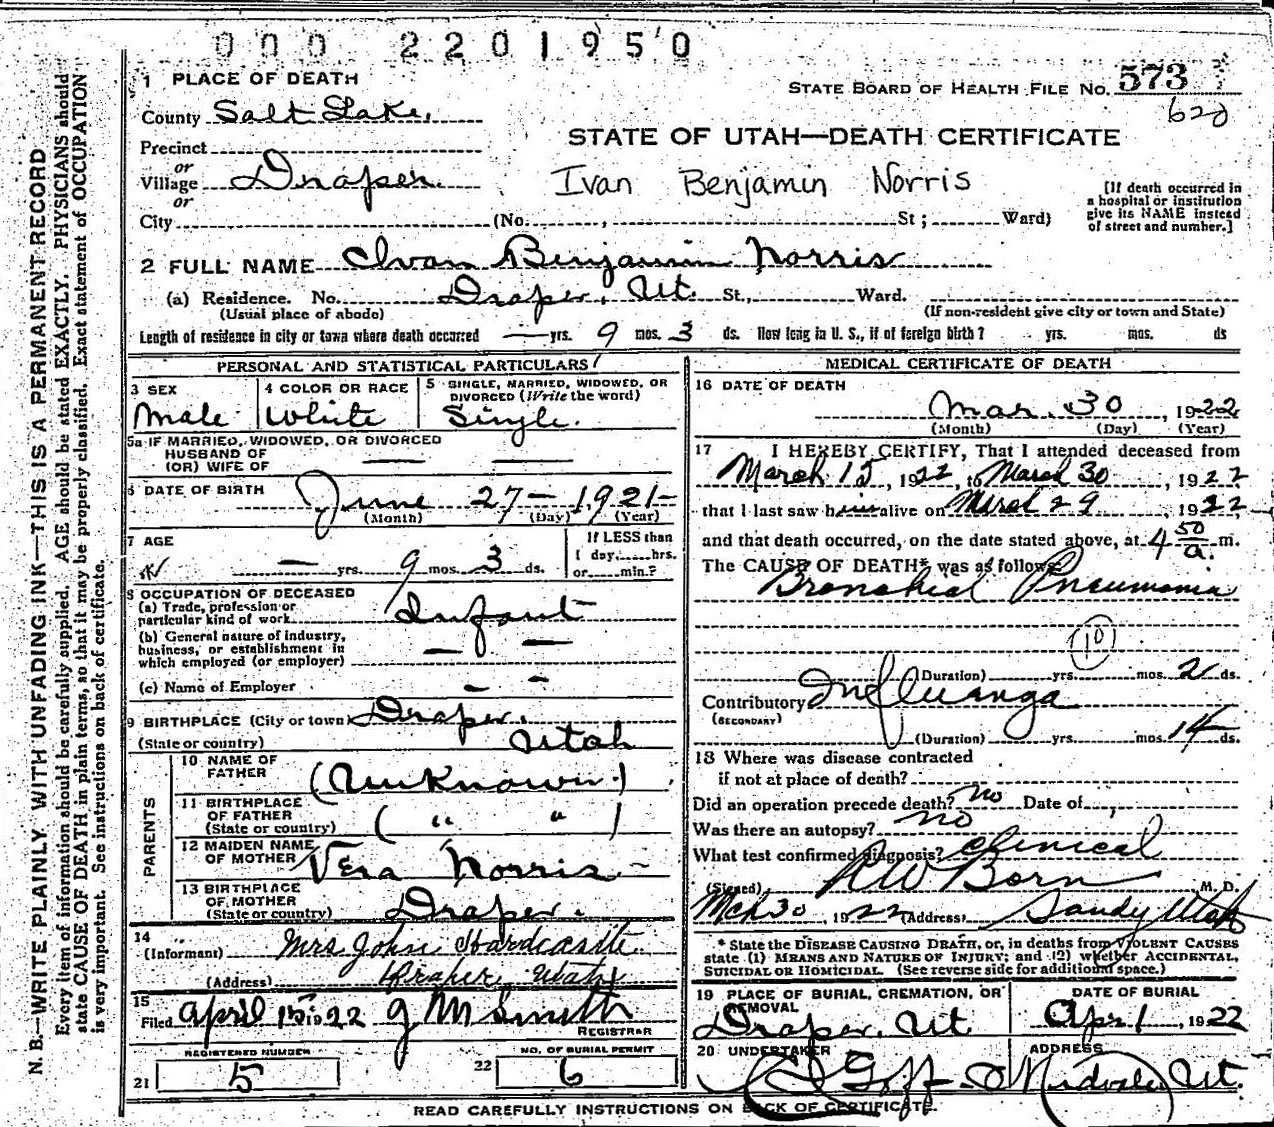 000 2201950
1 PLACE OF DEATH
STATE BOARD OF HEALTH FILE NO. 573
620
County Salt Lake.
STATE OF UTAH—DEATH CERTIFICATE
Precinct
or
Village Draper.
Ivan Benjamin Norris
or
City (No. , St; Ward)
[If death occurred in
a hospital or institution
give its NAME instead
of street and number.]
2 FULL NAME Ivan Benjamin Norris
(a) Residence. No. Draper, Ut. St., Ward.
(Usual place of abode)
(If non-resident give city or town and State)
Length of residence in city or town where death occurred — yrs. 9 mos. 3 ds. How long in U. S., if of foreign birth? yrs. mos. ds
PERSONAL AND STATISTICAL PARTICULARS
3 SEX
Male
4 COLOR OR RACE
White
5 SINGLE, MARRIED, WIDOWED, OR
DIVORCED (Write the word)
Single.
5a IF MARRIED, WIDOWED, OR DIVORCED
HUSBAND OF
(OR) WIFE OF — —
6 DATE OF BIRTH June 27 — 1921-
(Month) (Day) (Year)
7 AGE
— yrs. 9 mos. 3 ds.
If LESS than
1 day, hrs.
or min.?
8 OCCUPATION OF DECEASED
(a) Trade, profession or
particular kind of work Infant
(b) General nature of industry,
business, or establishment in
which employed (or employer) — —
(c) Name of Employer – –
9 BIRTHPLACE (City or town) Draper,
(State or country) Utah
PARENTS
10 NAME OF
FATHER (Unknown.)
11 BIRTHPLACE
OF FATHER
(State or country) ( " " )
12 MAIDEN NAME
OF MOTHER Vera Norris –
13 BIRTHPLACE
OF MOTHER
(State or country) Draper.
14
(Informant) Mrs John Hardcastle
(Address) Draper, Utah
15
Filed April 15 1922 J M Smith
REGISTRAR
REGISTERED NUMBER
21 5
NO. OF BURIAL PERMIT
22 6
MEDICAL CERTIFICATE OF DEATH
16 DATE OF DEATH
Mar. 30, 1922
(Month) (Day) (Year)
17 I HEREBY CERTIFY, That I attended deceased from
March 15, 1922, to March 30, 1922
that I last saw him alive on March 29, 1922,
and that death occurred, on the date stated above, at 4 50 a. m.
The CAUSE OF DEATH* was as follows:
Bronchial Pneumonia
10
(Duration) yrs. mos. 2 ds.
Contributory Influanza
(SECONDARY)
(Duration) yrs. mos. 14 ds.
18 Where was disease contracted
if not at place of death?
Did an operation precede death? no Date of ,
Was there an autopsy? no
What test confirmed diagnosis? clinical
(Signed) R W Born M. D.
Mch 30, 1922 (Address) Sandy Utah
* State the DISEASE CAUSING DEATH, or, in deaths from VIOLENT CAUSES
state (1) MEANS AND NATURE OF INJURY; and (2) whether ACCIDENTAL,
SUICIDAL OR HOMICIDAL. (See reverse side for additional space.)
19 PLACE OF BURIAL, CREMATION, OR
REMOVAL
Draper, Ut.
DATE OF BURIAL
Apr 1, 1922
20 UNDERTAKER
Goff
ADDRESS
Midvale, Ut.
READ CAREFULLY INSTRUCTIONS ON BACK OF CERTIFICATE.
N. B.—WRITE PLAINLY WITH UNFADING INK—THIS IS A PERMANENT RECORD
Every item of information should be carefully supplied. AGE should be stated EXACTLY. PHYSICIANS should
state CAUSE OF DEATH in plain terms, so that it may be properly classified. Exact statement of OCCUPATION
is very important. See instructions on back of certificate.